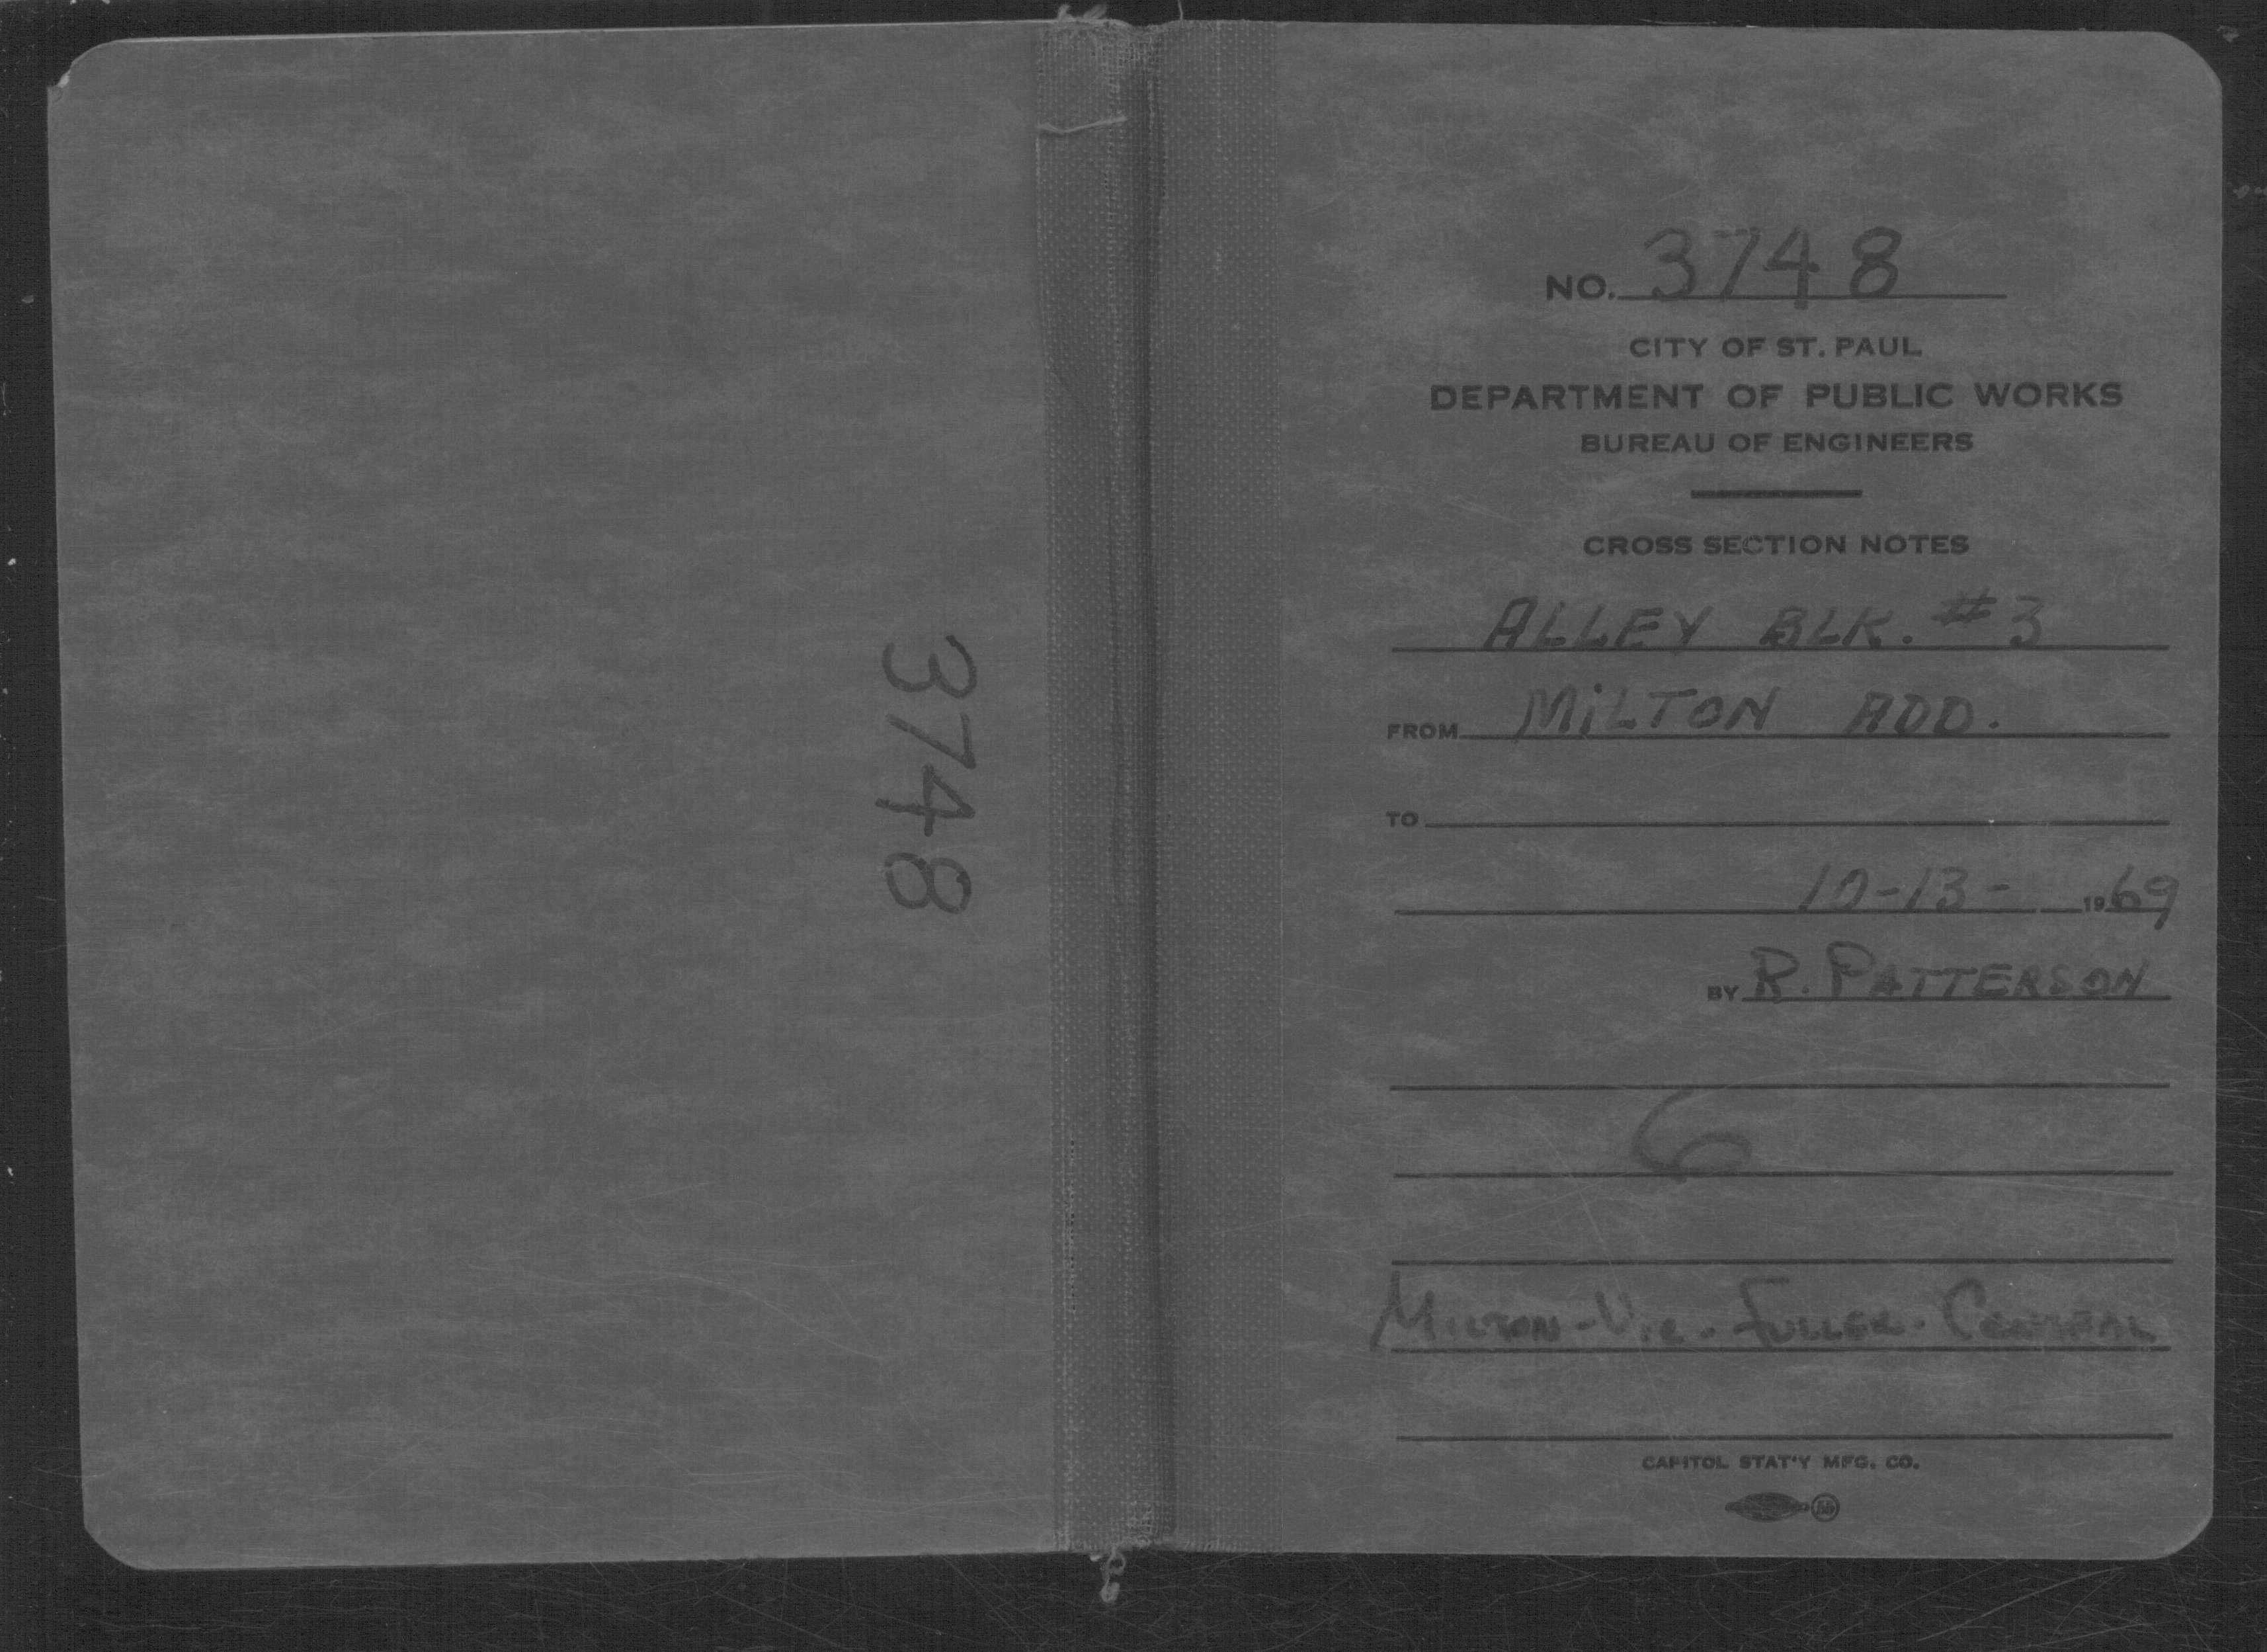 3748
NO. 3748
CITY OF ST. PAUL
DEPARTMENT OF PUBLIC WORKS
BUREAU OF ENGINEERS
CROSS SECTION NOTES
ALLEY BLK. #3
FROM MiLTON ADD.
TO
10-13- 1969
BY R. PATTERSON
6
MILTON - VIC. - FULLER - CENTRAL
CAPITOL STAT'Y MFG. CO.